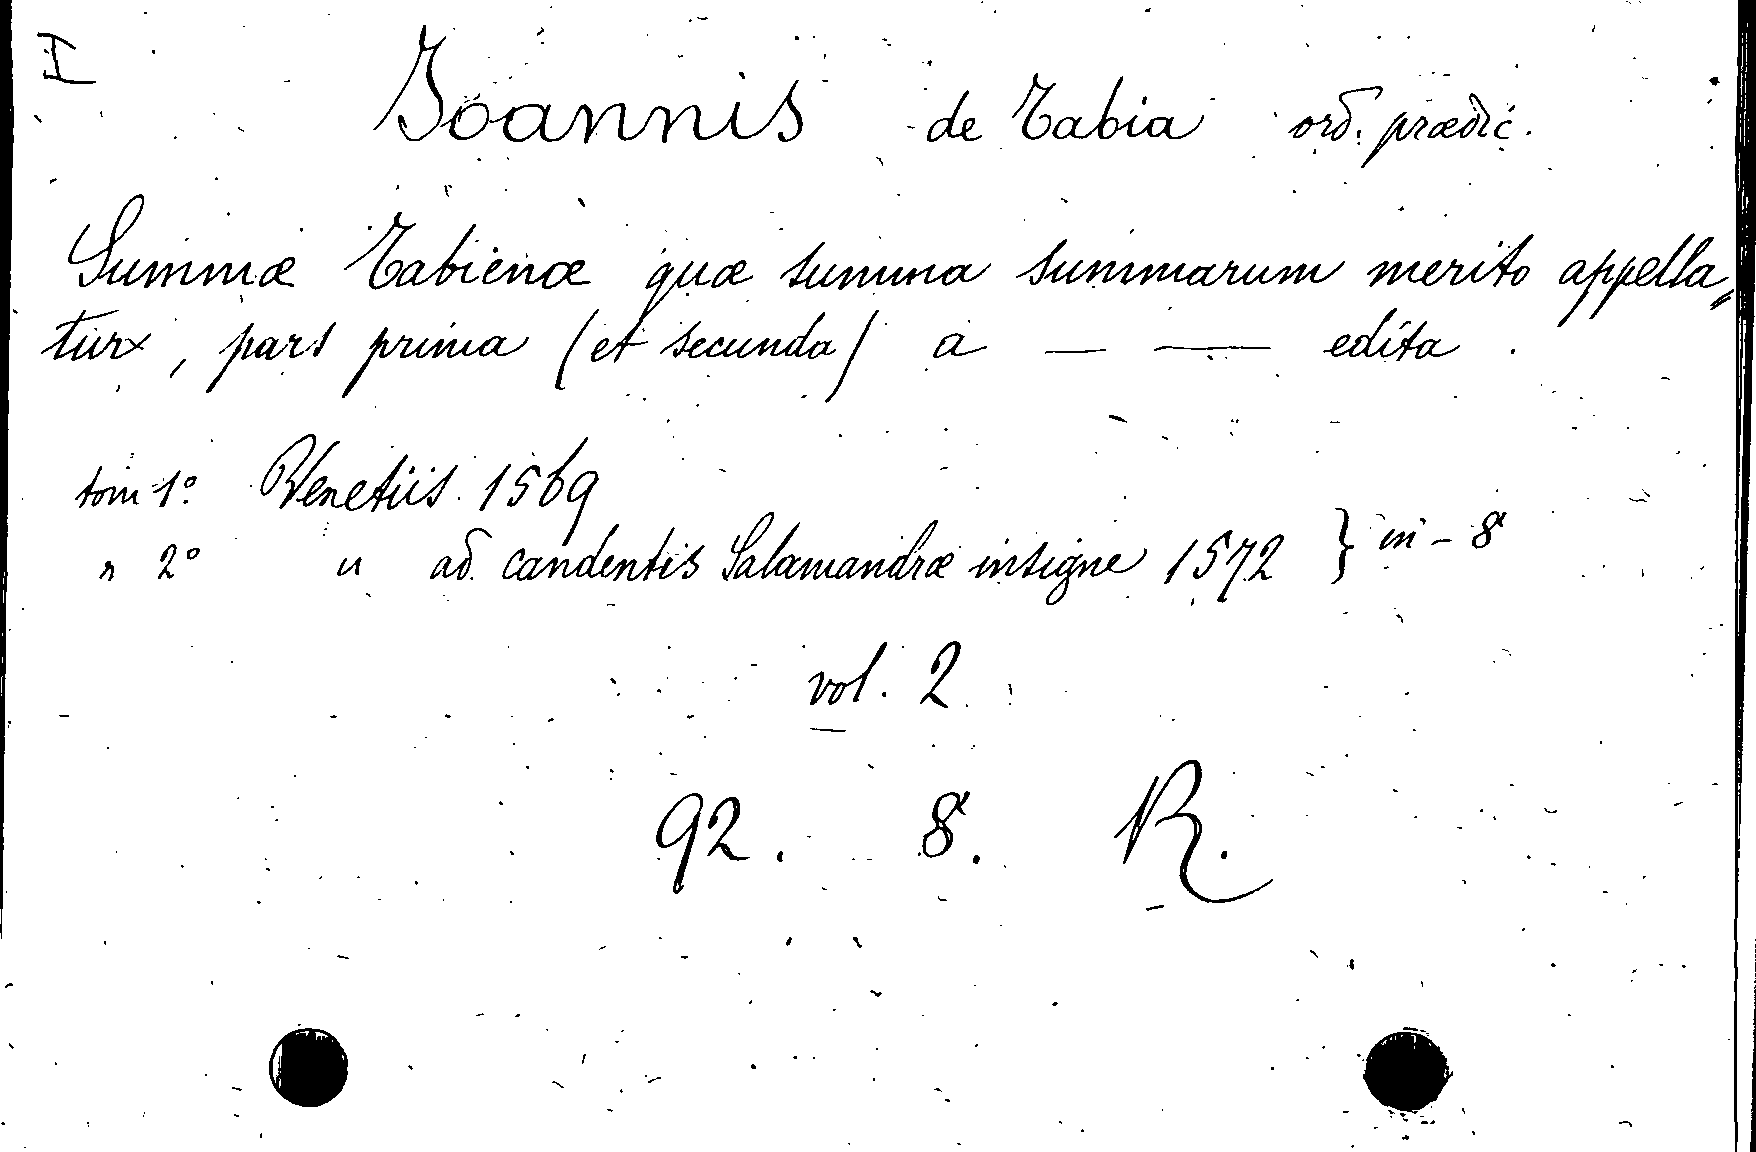 I
Joannis de Tabia ord. prædic.
Summæ Tabienæ quæ summa summarum merito appella„
tur, pars prima (et secunda) a — — edita.
tom 1º Venetiis 1569
„ 2º „ ad candentis Salamandræ insigne 1572 } in-8
vol. 2
92. 8. R.